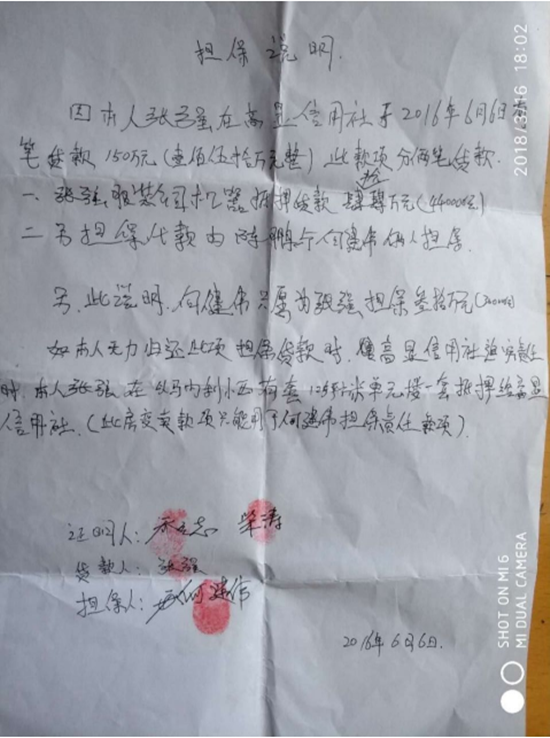 担保说明.
因本人张强在高显信用社于2016年6月6日
笔贷款150万元(壹佰伍拾万元整)此款项分俩笔贷款.
一、张强服装公司机器抵押贷款肆拾肆万元(440000元)
二另担保代款由陈鹏与何建伟俩人担保.
另.此说明.何健伟只愿为张强担保叁拾万元
如本人无力归还此项担保贷款时.高显信用社追究责任
时.本人张强在 有套125平米单元楼一套抵押给高显
信用社.(此房变卖款项只能用于何建伟担保责任款项)
证明人: 荣涛
贷款人:张强
担保人:何建伟
2016年6月6日.
2018/3/16 18:02
SHOT ON MI 6
MI DUAL CAMERA